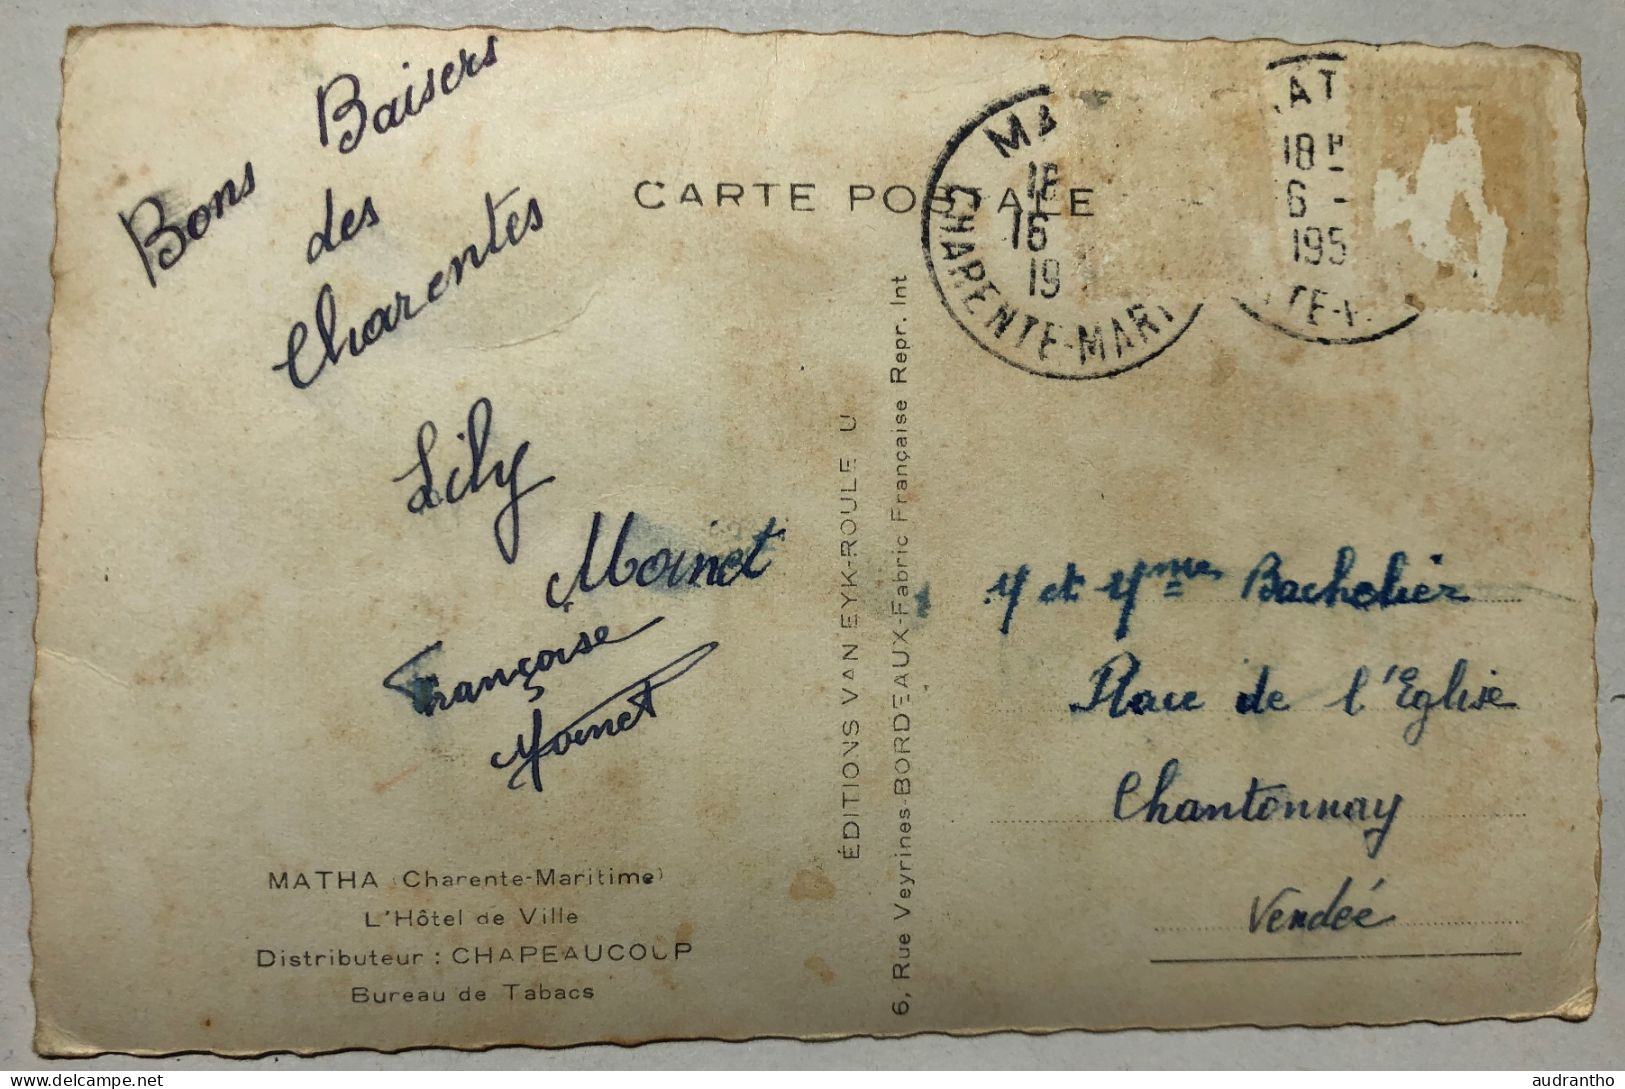 Bons Baisers
des
Charentes
Lily
Moinet
Françoise
Moinet
MATHA (Charente-Maritime)
L'Hôtel de Ville
Distributeur : CHAPEAUCOUP
Bureau de Tabacs
CARTE POSTALE
ÉDITIONS VAN EYK-ROULE U
6, Rue Veyrines-BORDEAUX-Fabric Française Repr. Int
MA
18
16
19
CHARENTE-MARI
AT
18 H
6 -
195
TE-
M et Mme Bachelier
Place de l'Eglise
Chantonnay
Vendée
audrantho